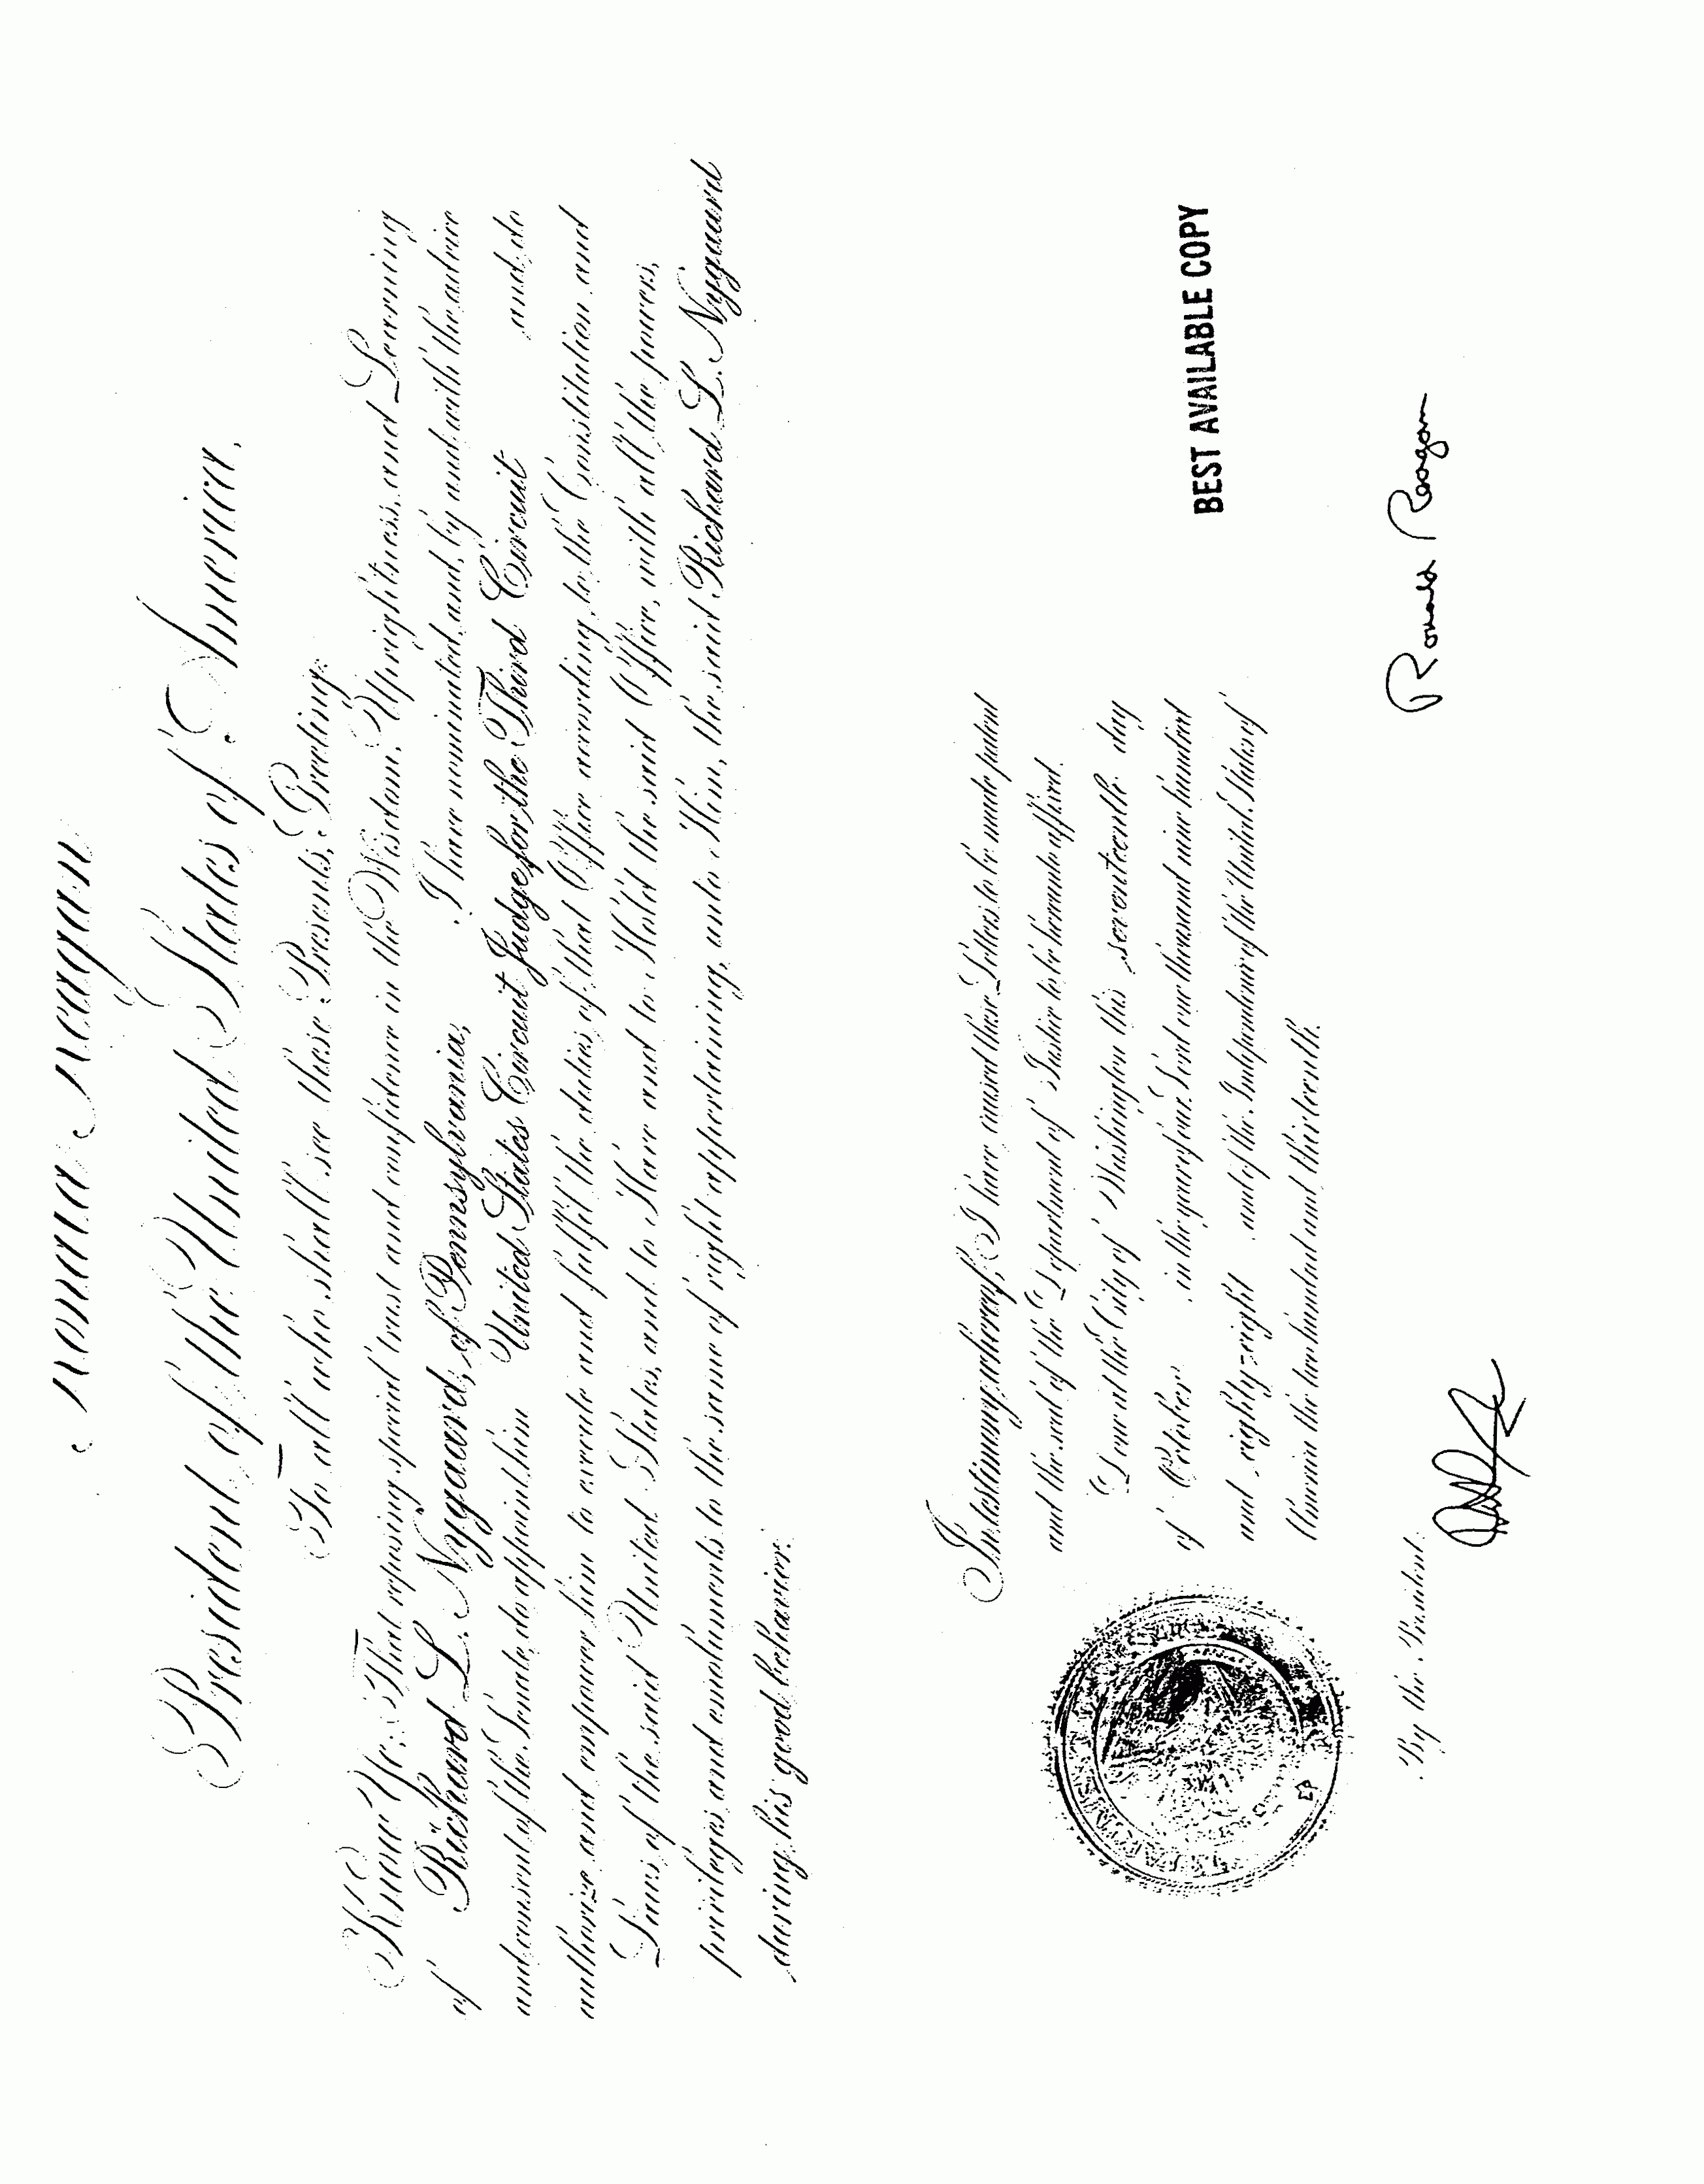 Ronald Reagan
President of the United States of America.
To all who shall see these Presents, Greeting:
Know Ye; That reposing special trust and confidence in the Wisdom, Uprightness, and Learning
of Richard L. Nygaard, of Pennsylvania, I have nominated, and, by and with the advice
and consent of the Senate, do appoint him United States Circuit Judge for the Third Circuit and do
authorize and empower him to execute and fulfil the duties of that Office according to the Constitution and
Laws of the said United States, and to Have and to Hold the said Office, with all the powers,
privileges and emoluments to the same of right appertaining, unto Him, the said Richard L. Nygaard
during his good behavior.
In testimony whereof, I have caused these Letters to be made patent
and the seal of the Department of Justice to be hereunto affixed.
Done at the City of Washington this seventeenth day
of October in the year of our Lord one thousand nine hundred
and eighty-eight and of the Independence of the United States of
America the two hundred and thirteenth.
BEST AVAILABLE COPY
Ronald Reagan
By the President: